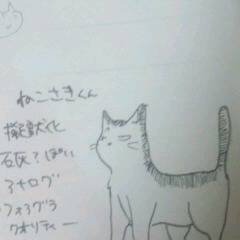 ねこさきくん
擬獣化
石灰?ぽい
アナログ
フォトグラ
クオリティー